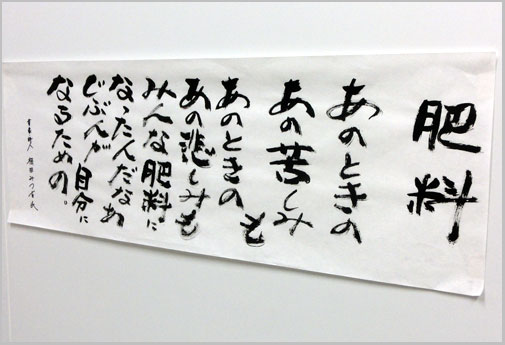 肥料
あのときの
あの苦しみも
あのときの
あの悲しみも
みんな肥料に
なったんだなあ
じぶんが自分に
なるための。